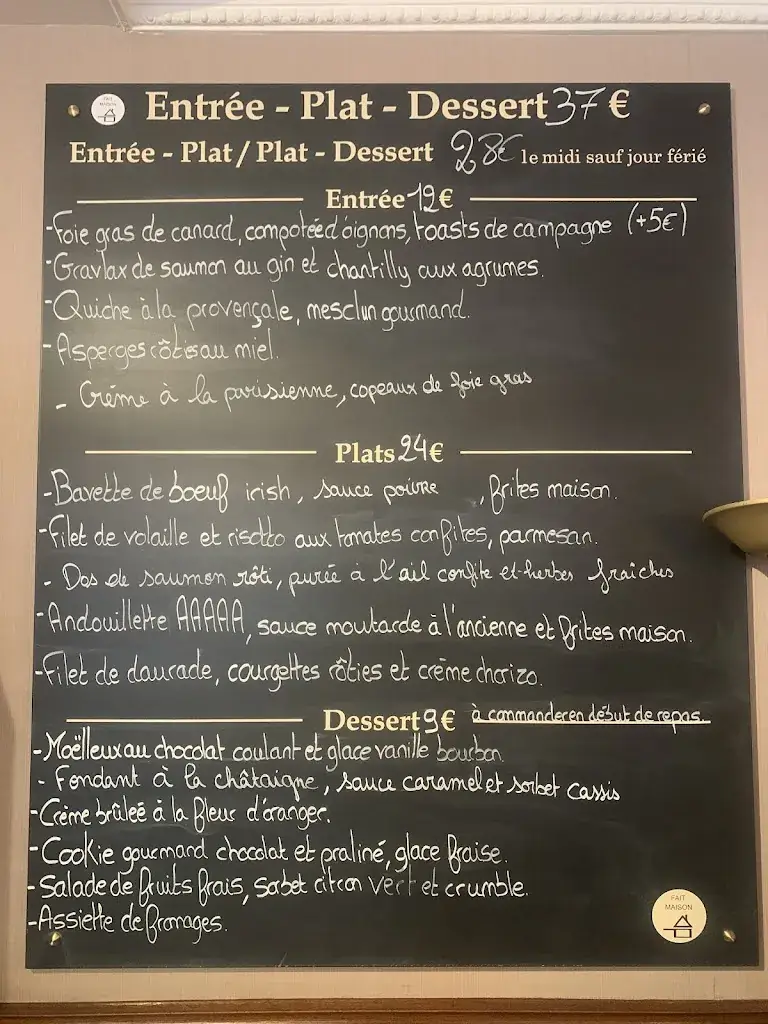 FAIT
MAISON
Entrée - Plat - Dessert 37 €
Entrée - Plat / Plat - Dessert 28€ le midi sauf jour férié
Entrée 12 €
-Foie gras de canard, compotée d'oignons, toasts de campagne (+5€)
-Gravlax de saumon au gin et chantilly aux agrumes.
-Quiche à la provençale, mesclun gourmand.
-Asperges rôties au miel.
- Crème à la parisienne, copeaux de foie gras
Plats 24 €
-Bavette de boeuf irish, sauce poivre , frites maison.
-Filet de volaille et risotto aux tomates confites, parmesan.
- Dos de saumon rôti, purée à l'ail confite et herbes fraîches
-Andouillette AAAAA, sauce moutarde à l'ancienne et frites maison.
-Filet de daurade, courgettes rôties et crème chorizo.
Dessert 9 € à commander en début de repas
-Moëlleux au chocolat coulant et glace vanille bourbon.
- Fondant à la châtaigne, sauce caramel et sorbet cassis
-Crème brûleé à la fleur d'oranger.
-Cookie gourmand chocolat et praliné, glace fraise.
-Salade de fruits frais, sorbet citron vert et crumble.
-Assiette de fromages.
FAIT
MAISON